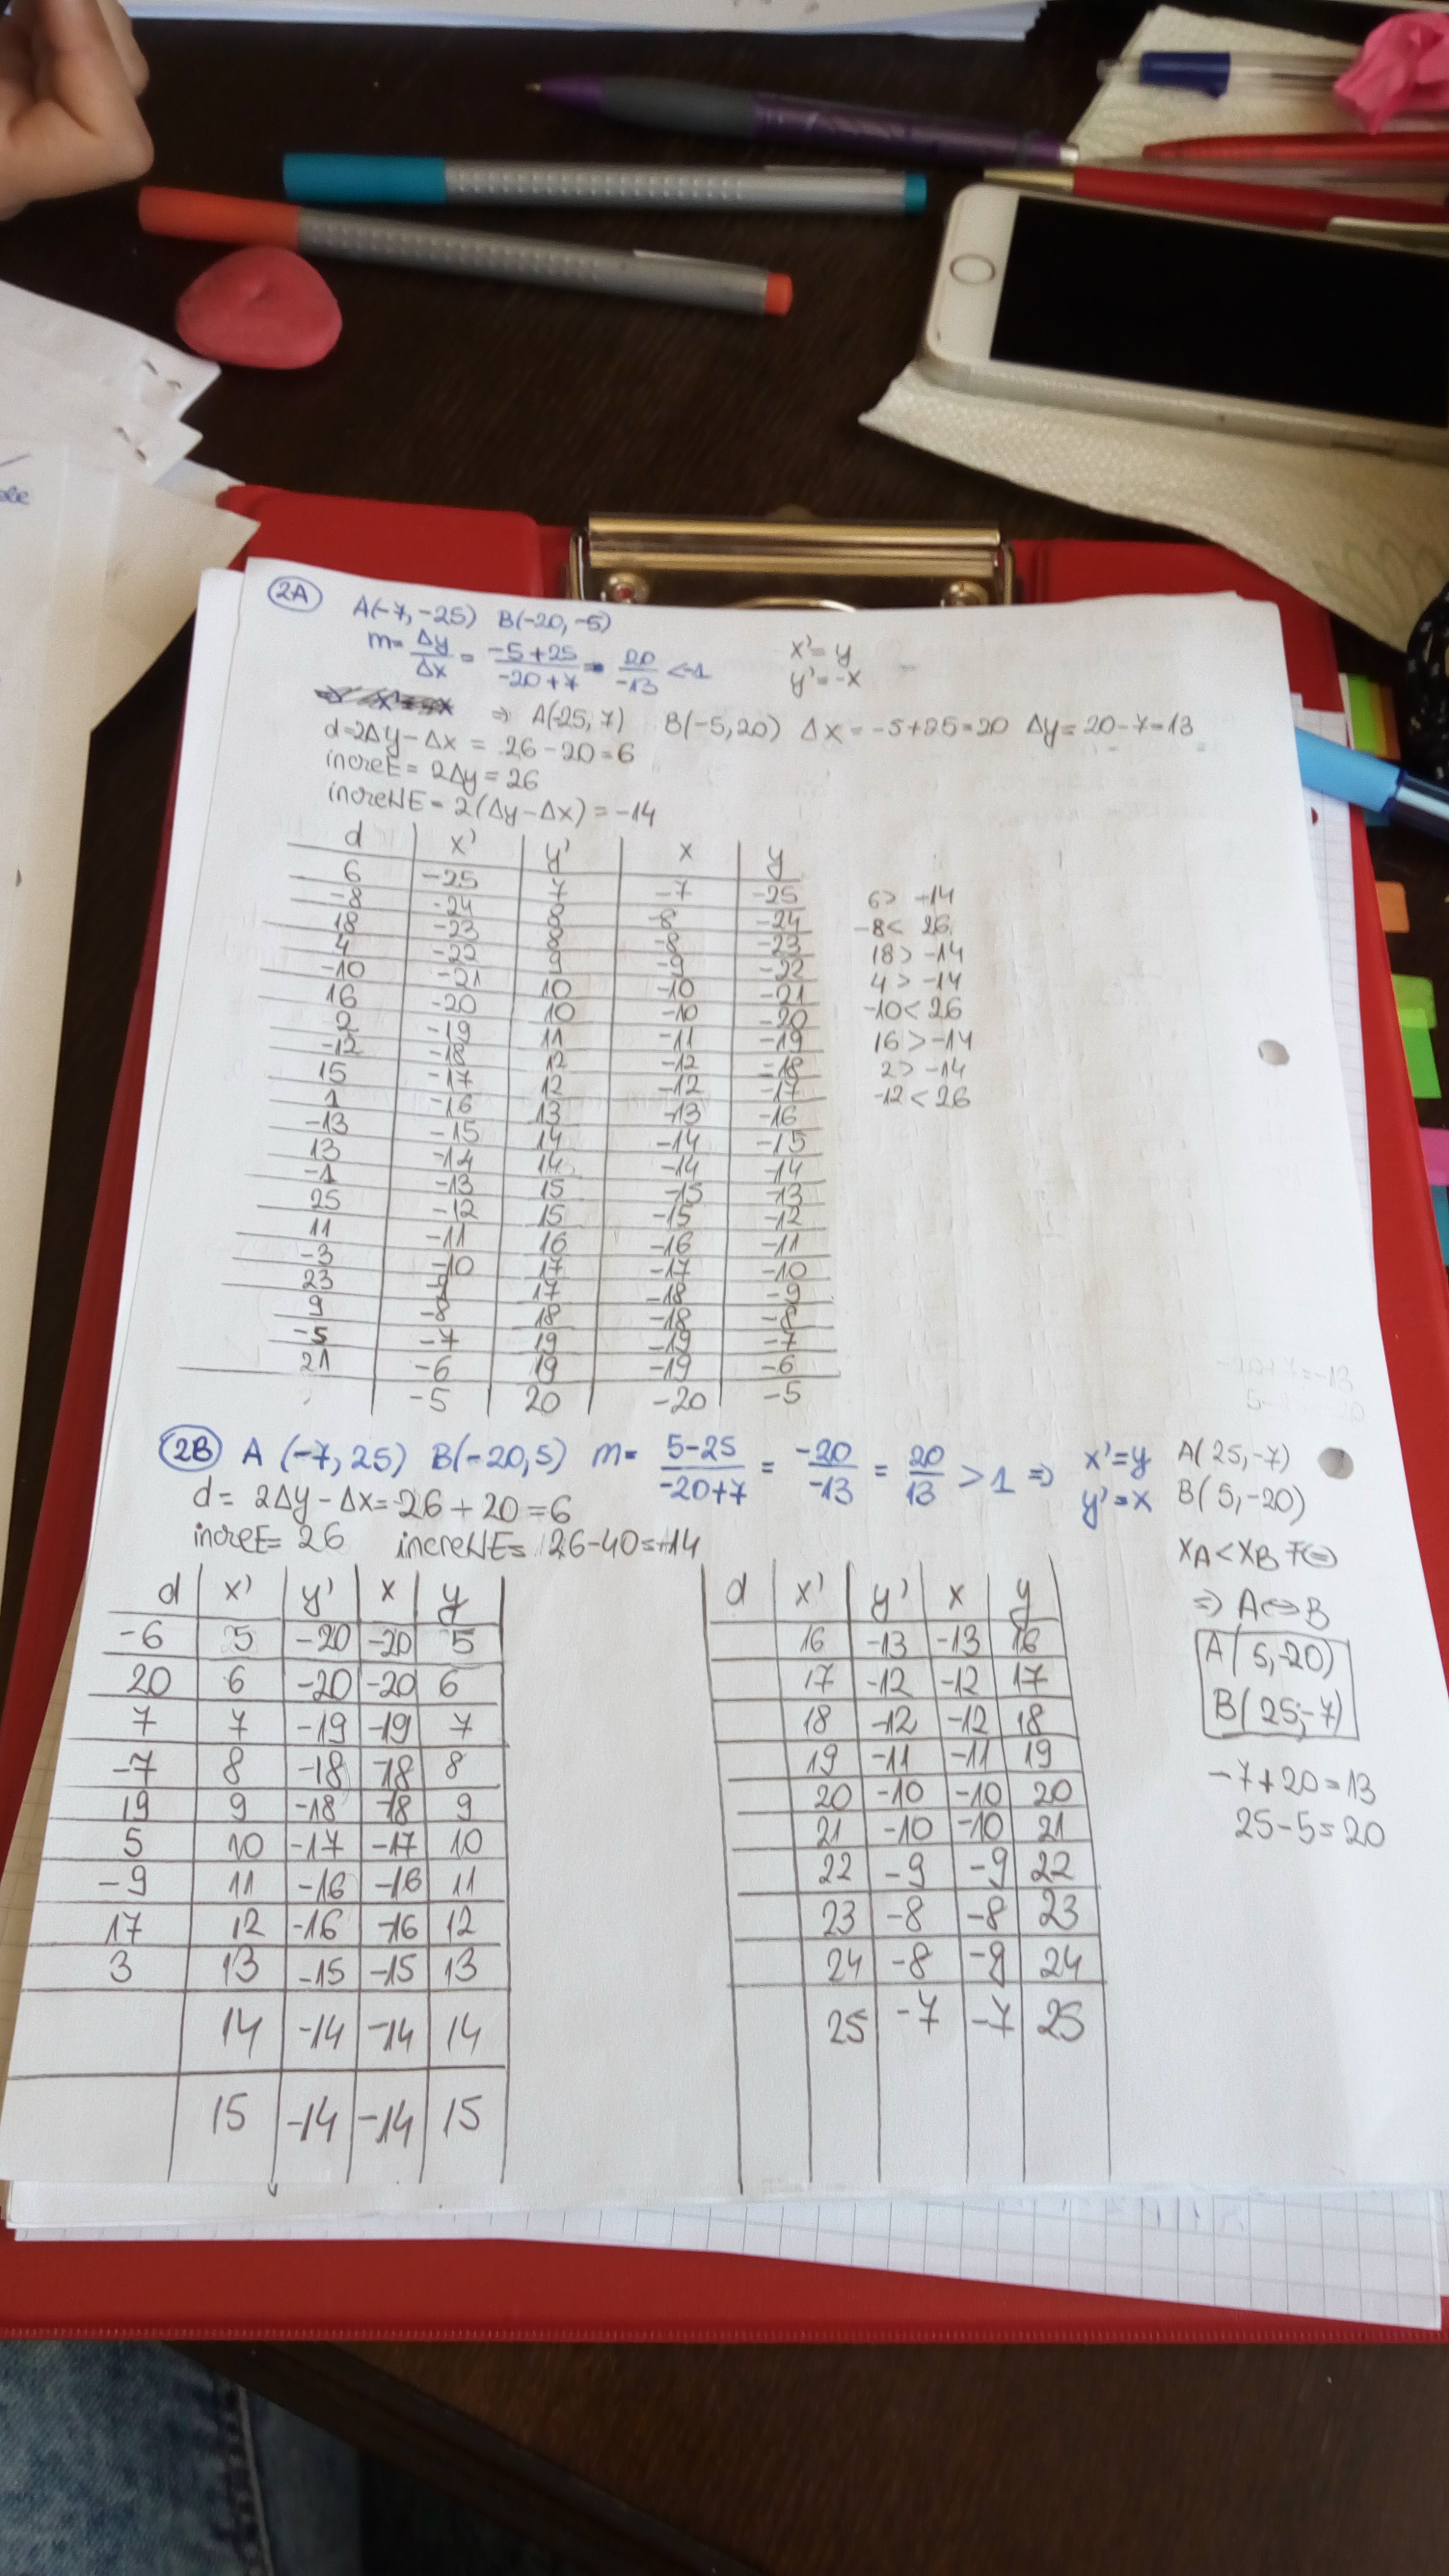 2A
A(-7,-25) B(-20,-5)
m= Δy/Δx = -5+25/-20+7 = 20/-13 <-1
x'=y
y'=-x
⇒ A(-25,7) B(-5,20) Δx=-5+25=20 Δy=20-7=13
d=2Δy-Δx = 26-20=6
increE= 2Δy=26
increNE= 2(Δy-Δx)=-14
d x' y' x y
6 -25 7 -7 -25
-8 -24 8 -8 -24
18 -23 8 -8 -23
4 -22 9 -9 -22
-10 -21 10 -10 -21
16 -20 10 -10 -20
2 -19 11 -11 -19
-12 -18 12 -12 -18
15 -17 12 -12 -17
1 -16 13 -13 -16
-13 -15 14 -14 -15
13 -14 14 -14 -14
-1 -13 15 -15 -13
25 -12 15 -15 -12
11 -11 16 -16 -11
-3 -10 17 -17 -10
23 -9 17 -18 -9
9 -8 18 -18 -8
-5 -7 19 -19 -7
21 -6 19 -19 -6
-5 20 -20 -5
6> +14
-8< 26
18> -14
4> -14
-10< 26
16>-14
2> -14
-12<26
2B A (-7,25) B(-20,5) m= 5-25/-20+7 = -20/-13 = 20/13 >1 ⇒ x'=y A(25,-7)
y'=x B(5,-20)
d= 2Δy-Δx=-26+20=6
increE= 26 increNE= 26-40=-14
xA<xB
⇒ A⇔B
A(5,-20)
B(25,-7)
-7+20=13
25-5=20
d x' y' x y
-6 5 -20 -20 5
20 6 -20 -20 6
7 7 -19 -19 7
-7 8 -18 -18 8
19 9 -18 -18 9
5 10 -17 -17 10
-9 11 -16 -16 11
17 12 -16 -16 12
3 13 -15 -15 13
14 -14 -14 14
15 -14 -14 15
d x' y' x y
16 -13 -13 16
17 -12 -12 17
18 -12 -12 18
19 -11 -11 19
20 -10 -10 20
21 -10 -10 21
22 -9 -9 22
23 -8 -8 23
24 -8 -8 24
25 -7 -7 25